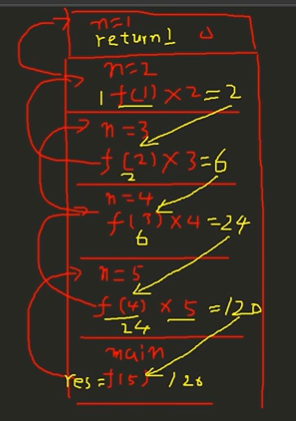 n=1
return1
n=2
1 f(1) × 2 = 2
n=3
f(2) × 3 = 6
2
n=4
f(3) × 4 = 24
6
n=5
f(4) × 5 = 120
24
main
res = f(5) 120